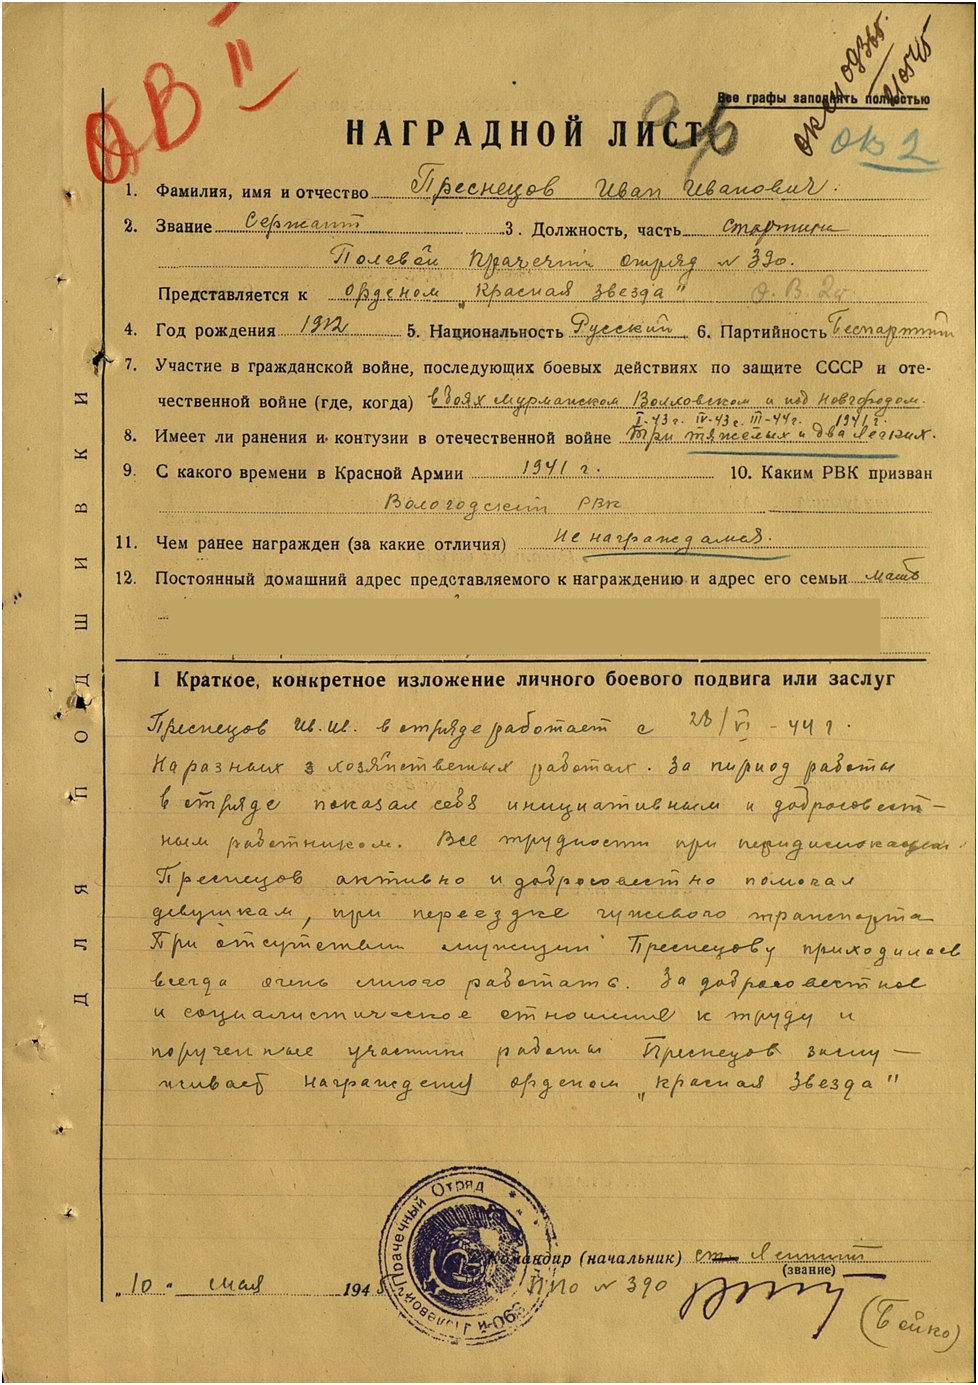 ОВ II
Все графы заполнять полностью
ОВ 2
НАГРАДНОЙ ЛИСТ
1. Фамилия, имя и отчество Преснецов Иван Иванович.
2. Звание Сержант 3. Должность, часть старшина
Полевой прачечн отряд N 390.
Представляется к орденом „Красная Звезда" О.В. 2ст
4. Год рождения 1912 5. Национальность Русский 6. Партийность Беспартийн
7. Участие в гражданской войне, последующих боевых действиях по защите СССР и оте-
чественной войне (где, когда) в боях Мурманском Волховском и под Новгородом.
I-43 г. IV-43 г. III-44 г. 1941 г.
8. Имеет ли ранения и контузии в отечественной войне Три тяжелых и два легких.
9. С какого времени в Красной Армии 1941 г. 10. Каким РВК призван
Вологодским РВК
11. Чем ранее награжден (за какие отличия) Не награждался.
12. Постоянный домашний адрес представляемого к награждению и адрес его семьи мать
I Краткое, конкретное изложение личного боевого подвига или заслуг
Преснецов Ив. Ив. в отряде работает с 28/VI - 44 г.
На разных хозяйственых работах. За период работы
в отряде показал себя инициативным и добросовест-
ным работником. Все трудности при передислокации
Преснецов активно и добросовестно помогал
девушкам, при переездке гужевого транспорта
При отсутствии мужчин Преснецову приходилось
всегда очень много работать. За добросовестное
и социалистическое отношение к труду и
порученные участки работы Преснецов заслу-
живает награждения орденом „Красная Звезда"
Командир (начальник) ст. Лейтент
(звание)
„10" мая 1945 ППО N 390
(Бейко)
390-й Полевой Прачечный Отряд
ДЛЯ ПОДШИВКИ